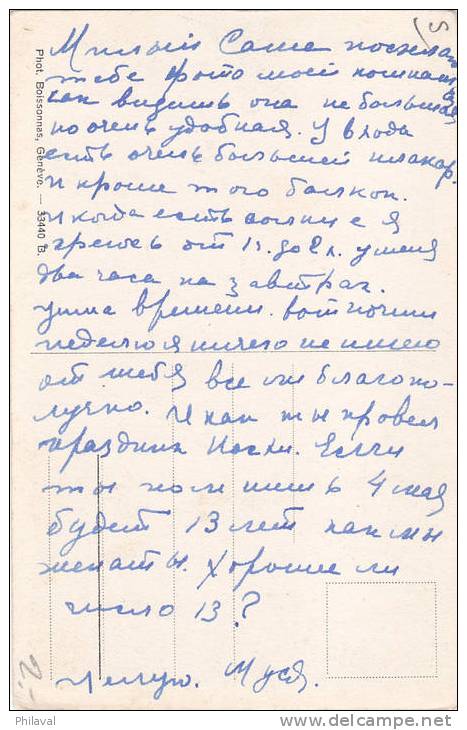 Милый Саша посылаю
тебе фото моей комнаты
как видишь она не большая
но очень удобная. У входа
есть очень большей шкапр.
И кроме того балкон.
И когда есть солнце я
греюсь от 12. до 2 ч. у меня
два часа на завтрак.
уйма времени. Вот почти
неделю я ничего не имею
от тебя все ли благопо-
лучно. И как ты провел
праздник Пасхи. Если
ты помнишь 4 мая
будет 13 лет как мы
женаты. Хорошее ли
число 13?
Целую. Муся.
Phot. Boissonnas, Genève. — 33440 B.
5
2.-
Philaval
delcampe.net